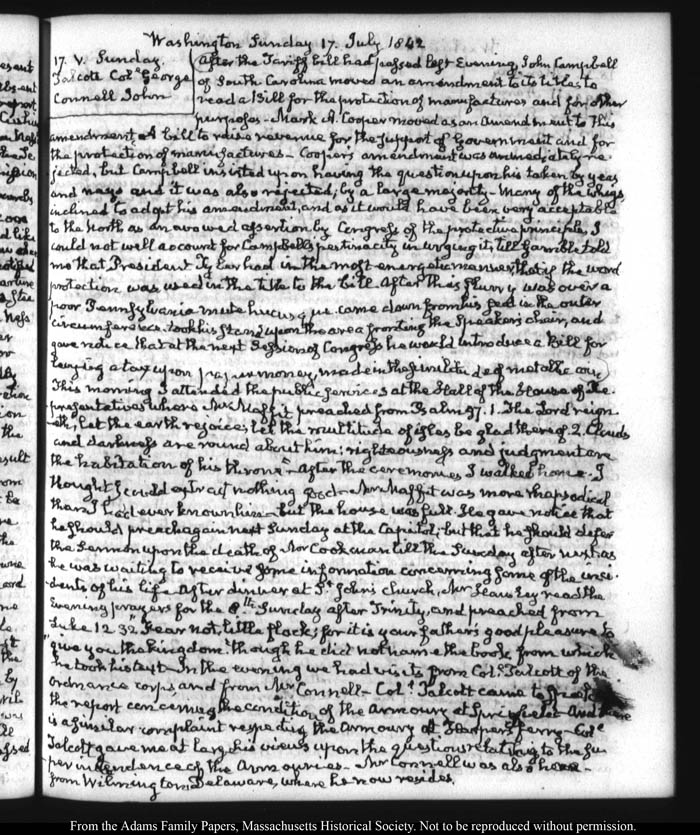 Washington Sunday 17. July 1842
17. V. Sunday.
Talcott Col.l George
Connell John
After the Tariff bill had passed last Evening, John Campbell
of South Carolina moved an amendment to its title to
read a Bill for the protection of manufactures and for other
purposes - Mark A. Cooper moved as an Amendment to this
amendment, A bill to raise revenue for the support of Government and for
the protection of manufactures - Cooper's amendment was immediately re-
jected, but Campbell insisted upon having the question upon his taken by yeas
and nays and it was also rejected, by a large majority - Many of the whigs
inclined to adopt his amendment, and as it would have been very acceptable
to the North as an avowed assertion by Congress of the protective principle, I
could not well account for Campbell's pertinacity in urging it, till Gamble told
me that President Tyler had in the most energetic manner, that if the word
protection was used in the title to the bill. After this flurry was over a
poor Pennsylvania mute came down from his seat in the outer
circumference took his stand upon the area fronting the Speaker's chair, and
gave notice that at the next Session of Congress he would introduce a Bill for
laying a tax upon paper money, made in the similitude of metallic coin)
This morning I attended the public services at the Hall of the House of Re-
presentatives where Mr Maffit preached from Psalm 97. 1. The Lord reign-
eth, let the earth rejoice; let the multitude of isles be glad thereof 2. Clouds
and darkness are round about him: righteousness and judgment are
the habitation of his throne - After the ceremonies I walked home. I
thought I could extract nothing good - Mr Maffit was more rhapsodical
than I had ever known him - but the house was full. He gave notice that
he should preach again next Sunday at the Capitol; but that he should defer
the Sermon upon the death of Mr Cookman till the Sunday after next as
he was waiting to receive some information concerning some of the inci-
dents of his life - After dinner at St John's church, Mr Hawley read the
Evening prayers for the 8th Sunday after Trinity, and preached from
Luke 12. 32. "Fear not, little flock; for it is your father's good pleasure to
"give you the kingdom." though he did not name the book from which
he took his text. In the evening we had visits from Col.l Talcott of the
Ordnance corps and from Mr Connell - Col.l Talcott came to speak
the report concerning the condition of the Armoury at Springfield - And there
is a similar complaint respecting the Armoury at Harper's ferry - Col.l
Talcott gave me at large his views upon the questions relating to the su-
perintendence of the Armouries - Mr Connell was also here -
from Wilmington Delaware, where he now resides.
From the Adams Family Papers, Massachusetts Historical Society. Not to be reproduced without permission.